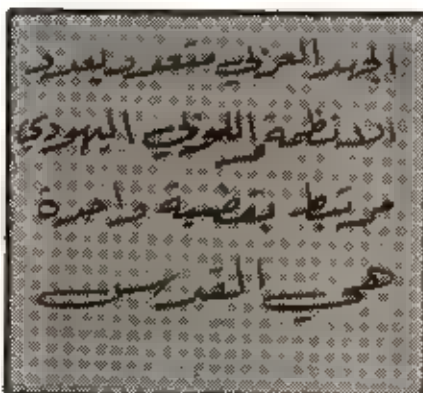 الجهد العربي متعدد بعدد
الانظمة اليهودي
مرتبط بقضية واحدة
هي القدس